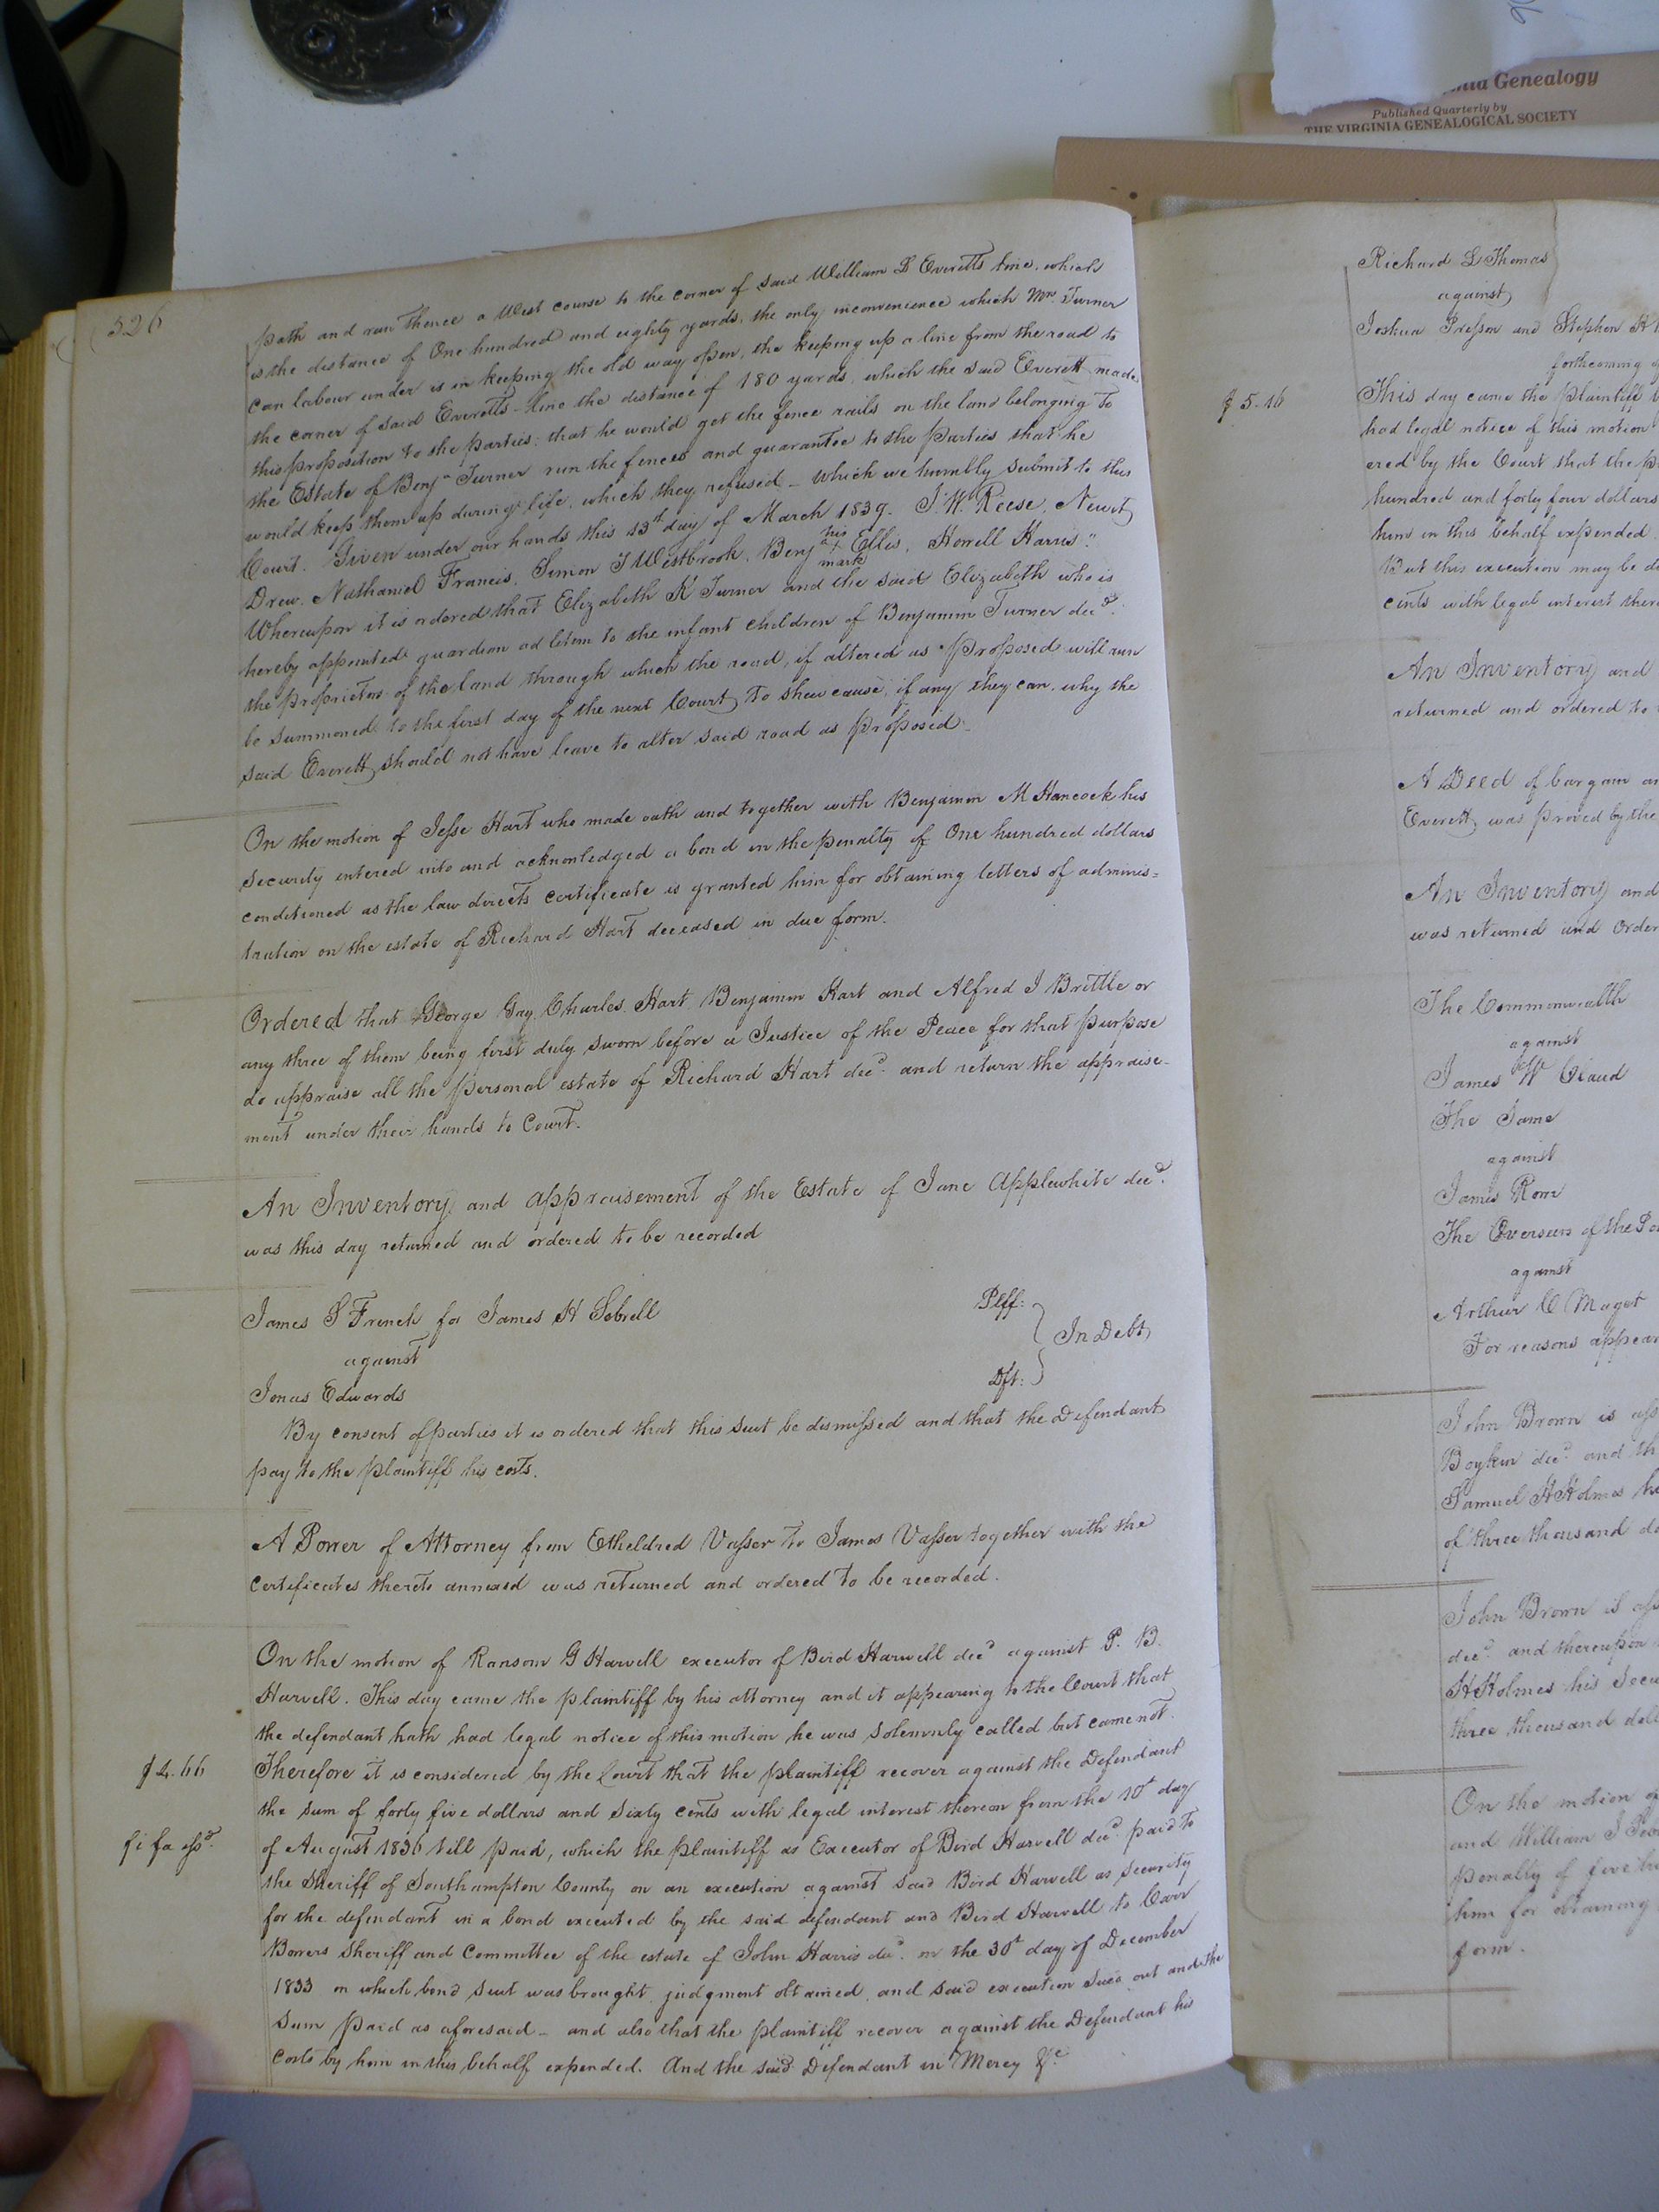 526
path and run thence a West course to the corner of said William D Everetts line, which
is the distance of One hundred and eighty yards, the only inconvenience which Mrs Turner
can labour under is in keeping the old way open, the keeping up a line from the road to
the corner of said Everetts line the distance of 180 yards, which the said Everett made
this proposition to the parties; that he would get the fence rails on the land belonging to
the Estate of Benja Turner run the fences and guarantee to the parties that he
would keep them up during life, which they refused – which we humbly submit to this
Court. Given under our hands this 13th day of March 1839. J. W. Reese, Newit
Drew, Nathaniel Francis, Simon T Westbrook, Benj his + mark Ellis, Howell Harris."
Whereupon it is ordered that Elizabeth K Turner and the said Elizabeth who is
hereby appointed guardian ad litem to the infant children of Benjamin Turner decd.
the proprietors of the land through which the road, if altered as proposed will run
be summoned to the first day of the next Court to shew cause, if any they can, why the
said Everett should not have leave to alter said road as proposed.
On the motion of Jesse Hart who made oath and together with Benjamin M Hancock his
security entered into and acknowledged a bond in the penalty of One hundred dollars
conditioned as the law directs certificate is granted him for obtaining letters of adminis=
tration on the estate of Richard Hart deceased in due form.
Ordered that George Gay, Charles Hart, Benjamin Hart and Alfred J Brittle or
any three of them being first duly sworn before a Justice of the Peace for that purpose
do appraise all the personal estate of Richard Hart decd. and return the appraise-
ment under their hands to Court.
An Inventory and appraisement of the Estate of Jane Applewhite decd.
was this day returned and ordered to be recorded
James S French for James H Sebrell Plff:
against In Debt
Jonas Edwards Dft:
By consent of parties it is ordered that this suit be dismissed and that the Defendant
pay to the plaintiff his costs.
A Power of Attorney from Etheldred Vasser to James Vasser together with the
certificates thereto annexed was returned and ordered to be recorded.
On the motion of Ransom G Harwell executor of Bird Harwell decd against P. B.
Harwell. This day came the plaintiff by his attorney and it appearing to the Court that
the defendant hath had legal notice of this motion he was solemnly called but came not.
$4.66 Therefore it is considered by the Court that the plaintiff recover against the Defendant
the sum of forty five dollars and sixty cents with legal interest thereon from the 10th day
fi fa issd. of August 1836 till paid, which the plaintiff as Executor of Bird Harwell decd. paid to
the Sheriff of Southampton County on an execution against said Bird Harwell as security
for the defendant in a bond executed by the said defendant and Bird Harwell to Carr
Bowers Sheriff and Committee of the estate of John Harris decd. on the 30th day of December
1833 on which bond suit was brought, judgment obtained, and said execution sued out and the
sum paid as aforesaid – and also that the plaintiff recover against the Defendant his
costs by him in this behalf expended. And the said Defendant in Mercy &c
Richard L Thomas
against
Joshua Presson and Stephen H
forthcoming
$5.16 This day came the plaintiff
had legal notice of this motion
ered by the Court that the
hundred and forty four dollars
him in this behalf expended.
But this execution may be
cents with legal interest
An Inventory and
returned and ordered to
A Deed of bargain
Everett was proved by the
An Inventory and
was returned and
The Commonwealth
against
James W Claud
The Same
against
James Rose
The Overseers of the
against
Arthur C Maget
For reasons
John Brown is
Boykin decd. and
Samuel H Holmes
of three thousand
John Brown is
decd. and thereupon
H Holmes his
three thousand
On the motion
and William J
penalty of five
him for obtaining
form.
Genealogy
Published Quarterly by
THE VIRGINIA GENEALOGICAL SOCIETY